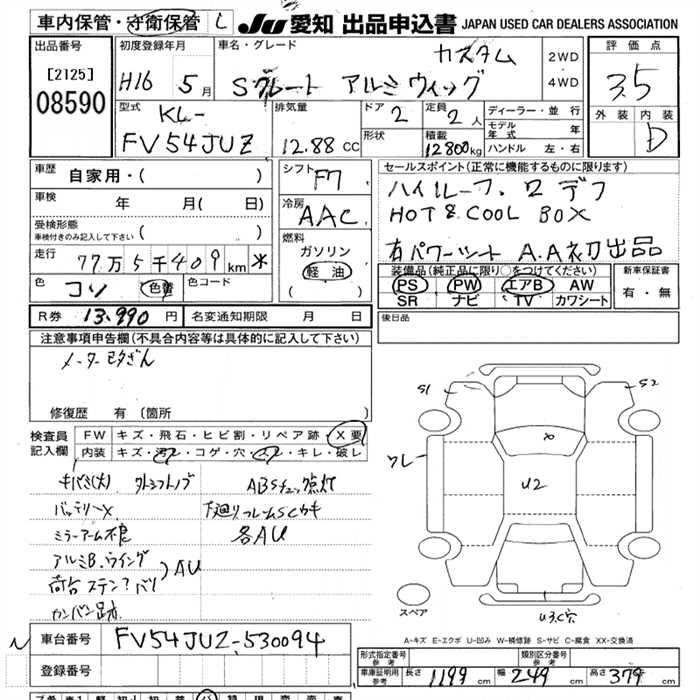 車内保管・守衛保管 L JU 愛知 出品申込書 JAPAN USED CAR DEALERS ASSOCIATION
出品番号 [2125] 08590
初度登録年月 H16 5月
車名・グレード カスタム
Sグレート アルミウィング
2WD
4WD
評価点 3.5
外装 内装 D
型式 KL-
FV54JUZ
排気量 12.88 CC
ドア 2
形状
定員 2人
積載 12800kg
ディーラー・並行
モデル年式 年
ハンドル 左・右
車歴 自家用・( )
車検 年 月( 日)
受検形態
車検付きのみ記入して下さい ( )
走行 77万5千409km
色 コン 色替 色コード
シフト F7
冷房 AAC
燃料
ガソリン
軽油
( )
セールスポイント(正常に機能するものに限ります)
ハイルーフ.ロデフ
HOT & COOL BOX
右パワーシート A.A初出品
装備品(純正品に限り○をつけてください)
PS PW エアB AW
SR ナビ TV カワシート
新車保証書
有・無
R券 13.990円 名変通知期限 月 日
後日品
注意事項申告欄(不具合内容等は具体的に記入して下さい)
メーター改ざん
修復歴 有 (箇所 )
検査員記入欄
FW キズ・飛石・ヒビ割・リペア跡・X要
内装 キズ・汚レ・コゲ・穴・スレ・キレ・破レ
キバミ(大)
バッテリーX
ミラーアーム不良
アルミB.ウイング
荷台ステン?バリ
AU
カンバン跡
ABSチェック点灯
下廻りフレームSCカキ
各AU
S1
S2
ワレ
X
U2
U3.C穴
スペア
A-キズ E-エクボ U-凹み W-補修跡 S-サビ C-腐食 XX-交換済
車台番号 FV54JUZ-530094
登録番号
形式指定番号 参考
類別区分番号 参考
車庫証明用 参考 長さ 1199cm 幅 249cm 高さ 379cm